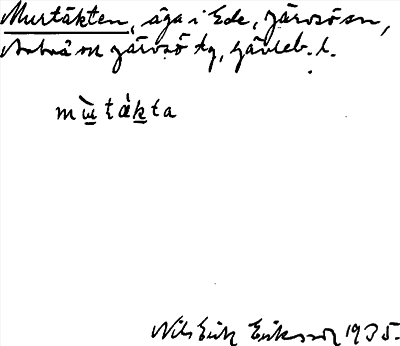 Murtäkten, äga i Ede, Järvsö sn,
Arbrå ok Järvsö tg, Gävleb. l.
mùtákta
Nils Erik Eriksson 1935.